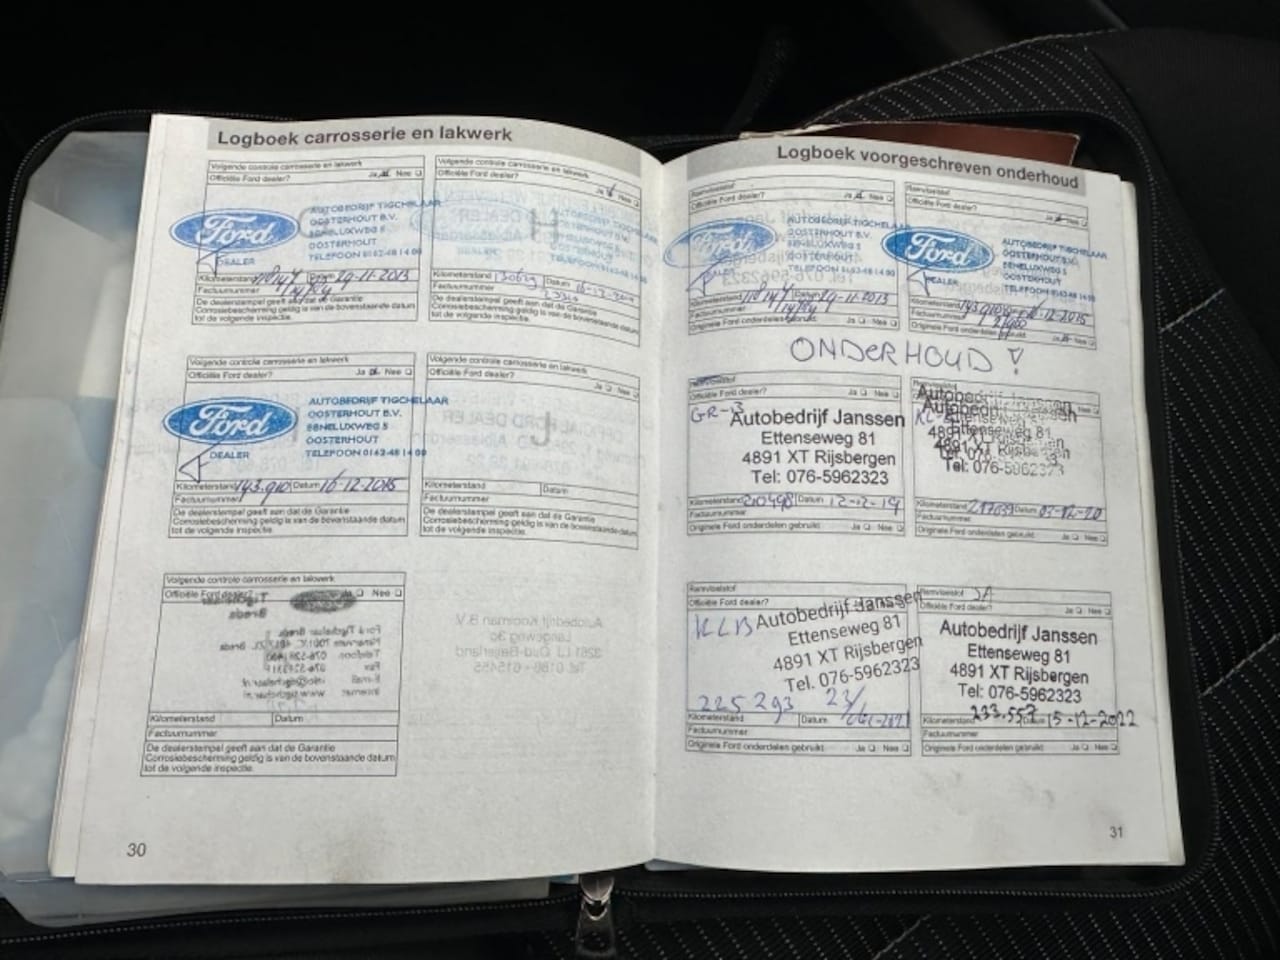 Logboek carrosserie en lakwerk
Volgende controle carrosserie en lakwerk
Officiële Ford dealer? Ja Nee
Ford
DEALER
AUTOBEDRIJF TIGCHELAAR
OOSTERHOUT B.V.
BENELUXWEG 5
OOSTERHOUT
TELEFOON 0162-48 14 00
Kilometerstand Datum 29-11-2013
Factuurnummer
De dealerstempel geeft aan dat de Garantie
Corrosiebescherming geldig is van de bovenstaande datum
tot de volgende inspectie.
Volgende controle carrosserie en lakwerk
Officiële Ford dealer? Ja Nee
Kilometerstand Datum
Factuurnummer
De dealerstempel geeft aan dat de Garantie
Corrosiebescherming geldig is van de bovenstaande datum
tot de volgende inspectie.
Volgende controle carrosserie en lakwerk
Officiële Ford dealer? Ja Nee
Ford
DEALER
AUTOBEDRIJF TIGCHELAAR
OOSTERHOUT B.V.
BENELUXWEG 5
OOSTERHOUT
TELEFOON 0162-48 14 00
Kilometerstand 143.910 Datum 16-12-2015
Factuurnummer
De dealerstempel geeft aan dat de Garantie
Corrosiebescherming geldig is van de bovenstaande datum
tot de volgende inspectie.
Volgende controle carrosserie en lakwerk
Officiële Ford dealer? Ja Nee
Kilometerstand Datum
Factuurnummer
De dealerstempel geeft aan dat de Garantie
Corrosiebescherming geldig is van de bovenstaande datum
tot de volgende inspectie.
Volgende controle carrosserie en lakwerk
Officiële Ford dealer? Nee
Kilometerstand Datum
Factuurnummer
De dealerstempel geeft aan dat de Garantie
Corrosiebescherming geldig is van de bovenstaande datum
tot de volgende inspectie.
30
Logboek voorgeschreven onderhoud
Remvloeistof
Officiële Ford dealer? Ja Nee
Ford
DEALER
AUTOBEDRIJF TIGCHELAAR
OOSTERHOUT B.V.
BENELUXWEG 5
OOSTERHOUT
TELEFOON 0162-48 14 00
Kilometerstand Datum 29-11-2013
Factuurnummer
Originele Ford onderdelen gebruikt Ja Nee
Remvloeistof
Officiële Ford dealer? Ja Nee
Ford
DEALER
AUTOBEDRIJF TIGCHELAAR
OOSTERHOUT B.V.
BENELUXWEG 5
OOSTERHOUT
TELEFOON 0162-48 14 00
Kilometerstand
Factuurnummer
Originele Ford onderdelen gebruikt Ja Nee
ONDERHOUD!
Remvloeistof
Officiële Ford dealer? Ja Nee
GR-B
Autobedrijf Janssen
Ettenseweg 81
4891 XT Rijsbergen
Tel: 076-5962323
Kilometerstand 210498 Datum 12-12-19
Factuurnummer
Originele Ford onderdelen gebruikt Ja Nee
Autobedrijf Janssen
Ettenseweg 81
Tel: 076-5962323
Kilometerstand 217039 Datum 03-12-20
Factuurnummer
Originele Ford onderdelen gebruikt Ja Nee
Remvloeistof
Officiële Ford dealer?
KLB
Autobedrijf Janssen
Ettenseweg 81
4891 XT Rijsbergen
Tel. 076-5962323
225293 23/
Kilometerstand Datum
Factuurnummer
Originele Ford onderdelen gebruikt Ja Nee
Remvloeistof
Officiële Ford dealer? Ja Nee
Autobedrijf Janssen
Ettenseweg 81
4891 XT Rijsbergen
Tel: 076-5962323
Kilometerstand 233.557 Datum 15-12-2022
Factuurnummer
Originele Ford onderdelen gebruikt Ja Nee
31